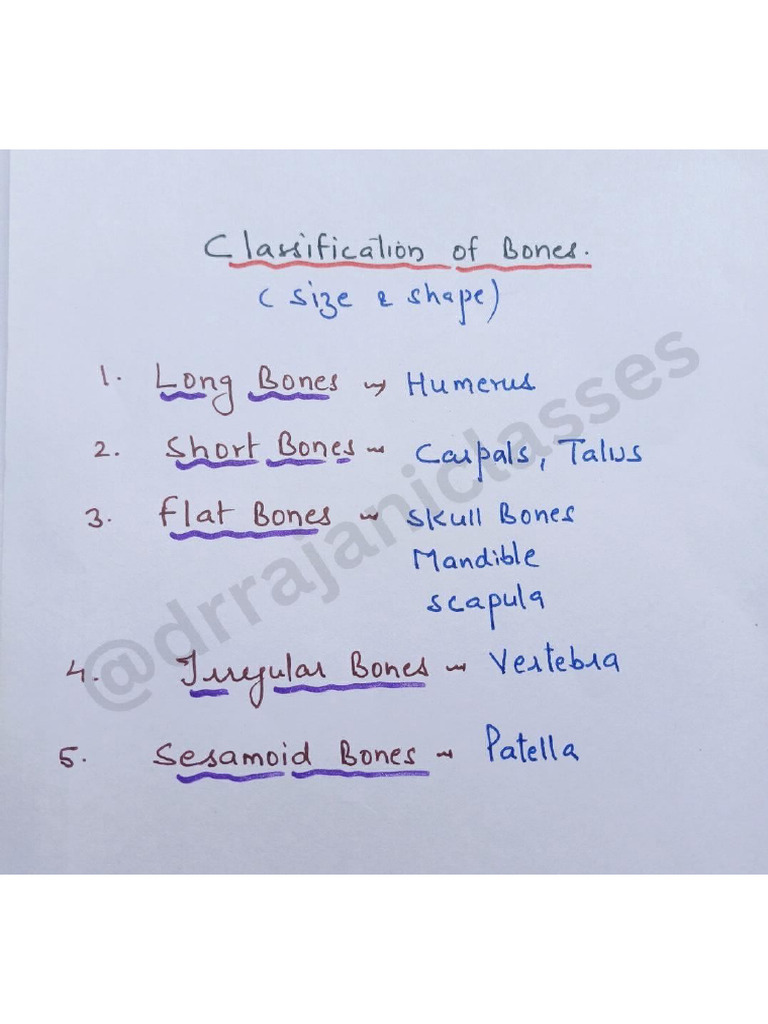 Classification of Bones.
(size & shape)
1. Long Bones → Humerus
2. Short Bones → Carpals, Talus
3. flat Bones → Skull Bones
Mandible
scapula
4. Irregular Bones → Vertebra
5. Sesamoid Bones → Patella
@drrajaniclasses